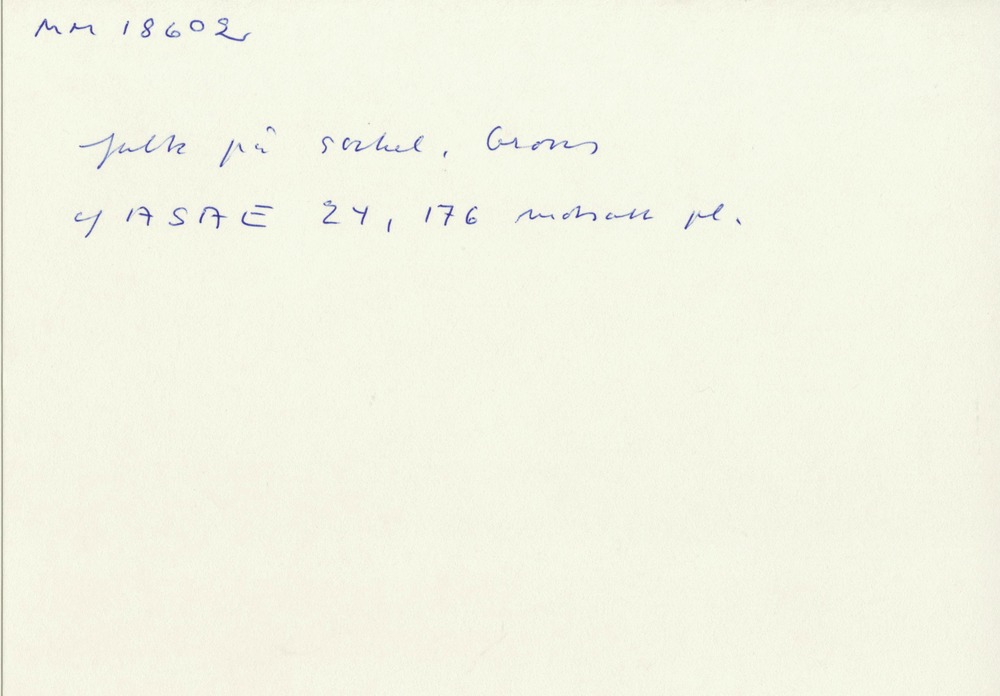 MM 18602
falk på sockel, brons
cf ASAE 24, 176 motsatt pl.